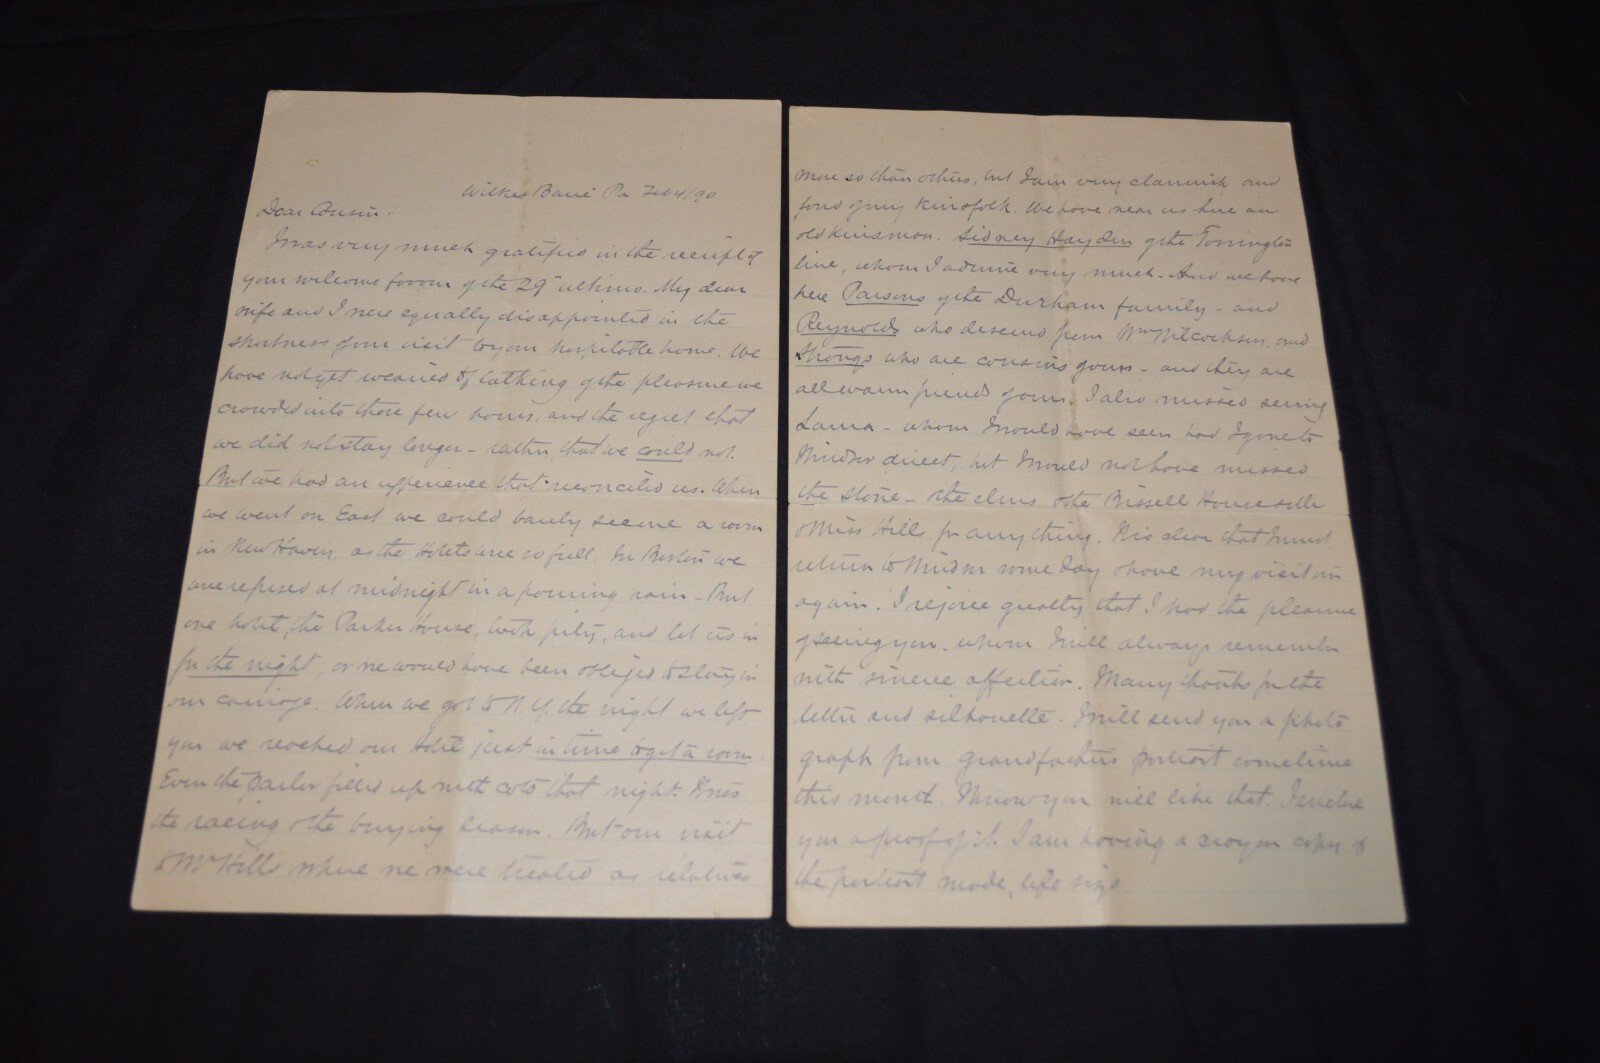 Wilkes Barré Pa Feb 4/90
Dear Cousin.
I was very much gratified in the receipt of
your welcome favor of the 29" ultimo. My dear
wife and I were equally disappointed in the
shortness of our visit to your hospitable home. We
have not yet wearied of talking of the pleasure we
crowded into those few hours, and the regret that
we did not stay longer - rather, that we could not.
But we had an experience that reconciled us. When
we went on East we could barely secure a room
in New Haven, as the Hotels were so full. In Boston we
were refused at midnight in a pouring rain - But
one hotel, the Parker House, took pity, and let us in
for the night, or we would have been obliged to stay in
our carriage. When we got to N.Y. the night we left
you we reached our Hotel just in time to get a room.
Even the parlor filled up with cots that night. It was
the racing & the buying season. But our visit
to Mr Hills where we were treated as relatives
more so than others, but I am very clannish and
fond of my Kinsfolk. We have near us here an
old kinsman. Sidney Hayden of the Torrington
line, whom I admire very much - And we have
here Parsons of the Durham family - and
Reynolds who descend from Wm Wilcockson, and
Strongs who are cousins of ours - and they are
all warm friends of ours. I also missed seeing
Laura - whom I would have seen had I gone to
Windsor direct, but I would not have missed
the stone - the elms & the Bissell House &
Miss Hills for anything. It is clear that I must
return to Windsor some day & have my visit
again. I rejoice greatly that I had the pleasure
of seeing you, whom I will always remember
with sincere affection. Many thanks for the
letter and silhouette. I will send you a photo
graph from grandfathers portrait sometime
this month. I know you will like that. I enclose
you a proof of it. I am having a crayon copy of
the portrait made, life size